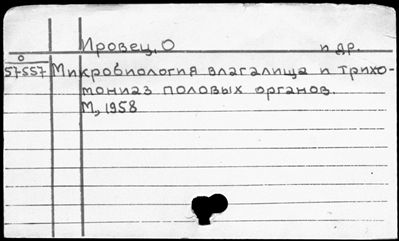 Ировец, О и др.
О
57-557 Микробиология влагалища и трихо-
мониаз половых органов.
М, 1958